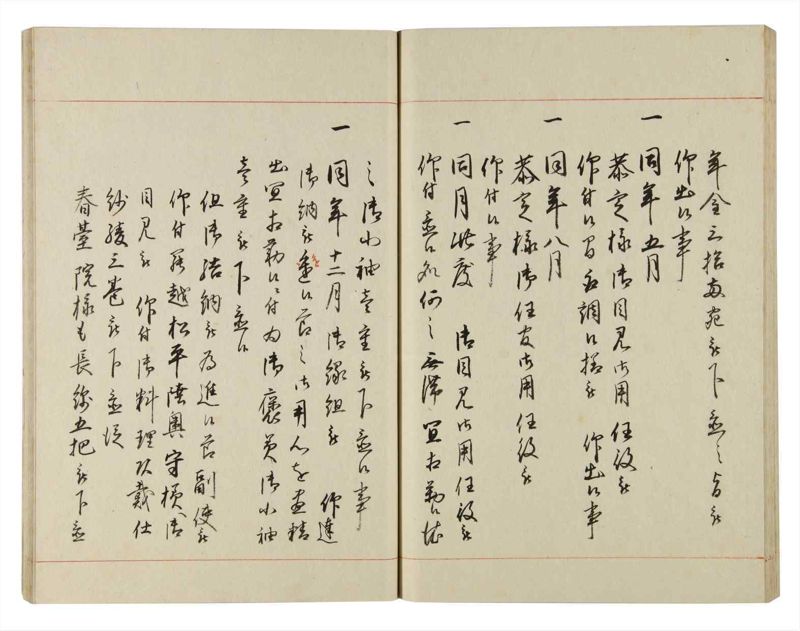 年金三拾両宛被下置之旨被
仰出候事
一 同年五月
恭定様御目見御用任役被
仰付候 調候様被 仰出候事
一 同年八月
恭定様御任官御用任役被
仰付候事
一 同月此度 御目見御用任役被
仰付置候処何之無滞宜相勤候
之御小袖壱重被下置候事
一 同年十二月御縁組被 仰達
御納被進候節之御用 精
出宜相勤候ニ付為御褒美御小袖
壱重被下置候
但御結納被為進候節副使被
仰付罷越松平陸奥守様御
目見被 仰付御料理頂戴仕
紗綾三巻被下置
春臺院様も長綿五把被下置